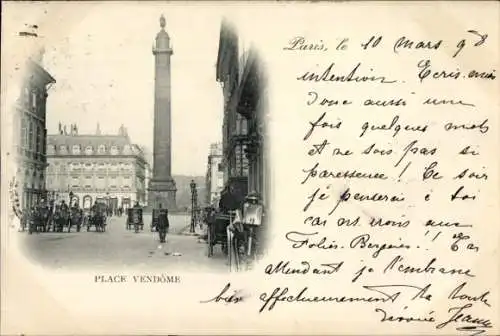 Paris, le 10 mars 98
intention. Écris-moi
donc aussi une
fois quelques mots
et ne sois pas si
paresseuse! Ce soir
je penserai à toi
car n irons aux
Folies-Bergère!! En
attendant je t'embrasse
bien affectueusement Ta toute
dévouée Jeanne
PLACE VENDÔME